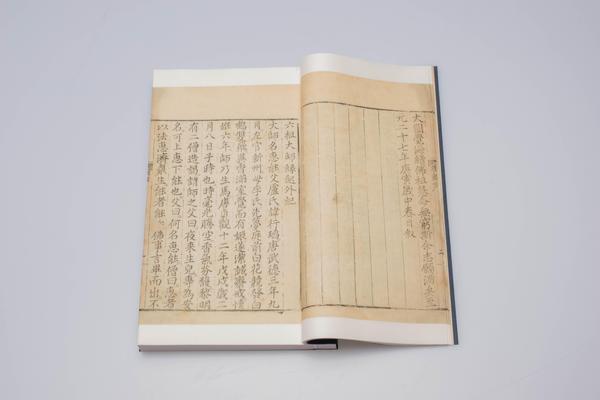 大圓覺海續佛祖慧命無窮斯余志願滿矣至
元二十七年庚寅歲中春日敘
六祖大師緣起外紀
大師名惠能父盧氏諱行瑫唐武德三年九
月左官新州母李氏先夢庭前白花競發白
鶴雙飛異香滿室覺而有娠遂潔誠齋戒懷
姙六年師乃生焉唐貞觀十二年戊戌歲二
月八日子時也時毫光騰空香氣芬馥黎明
有二僧造謁謂師之父曰夜來生兒專為安
名可上惠下能也父曰何名惠能僧曰惠者
以法惠濟衆生能者能 佛事言畢而出不